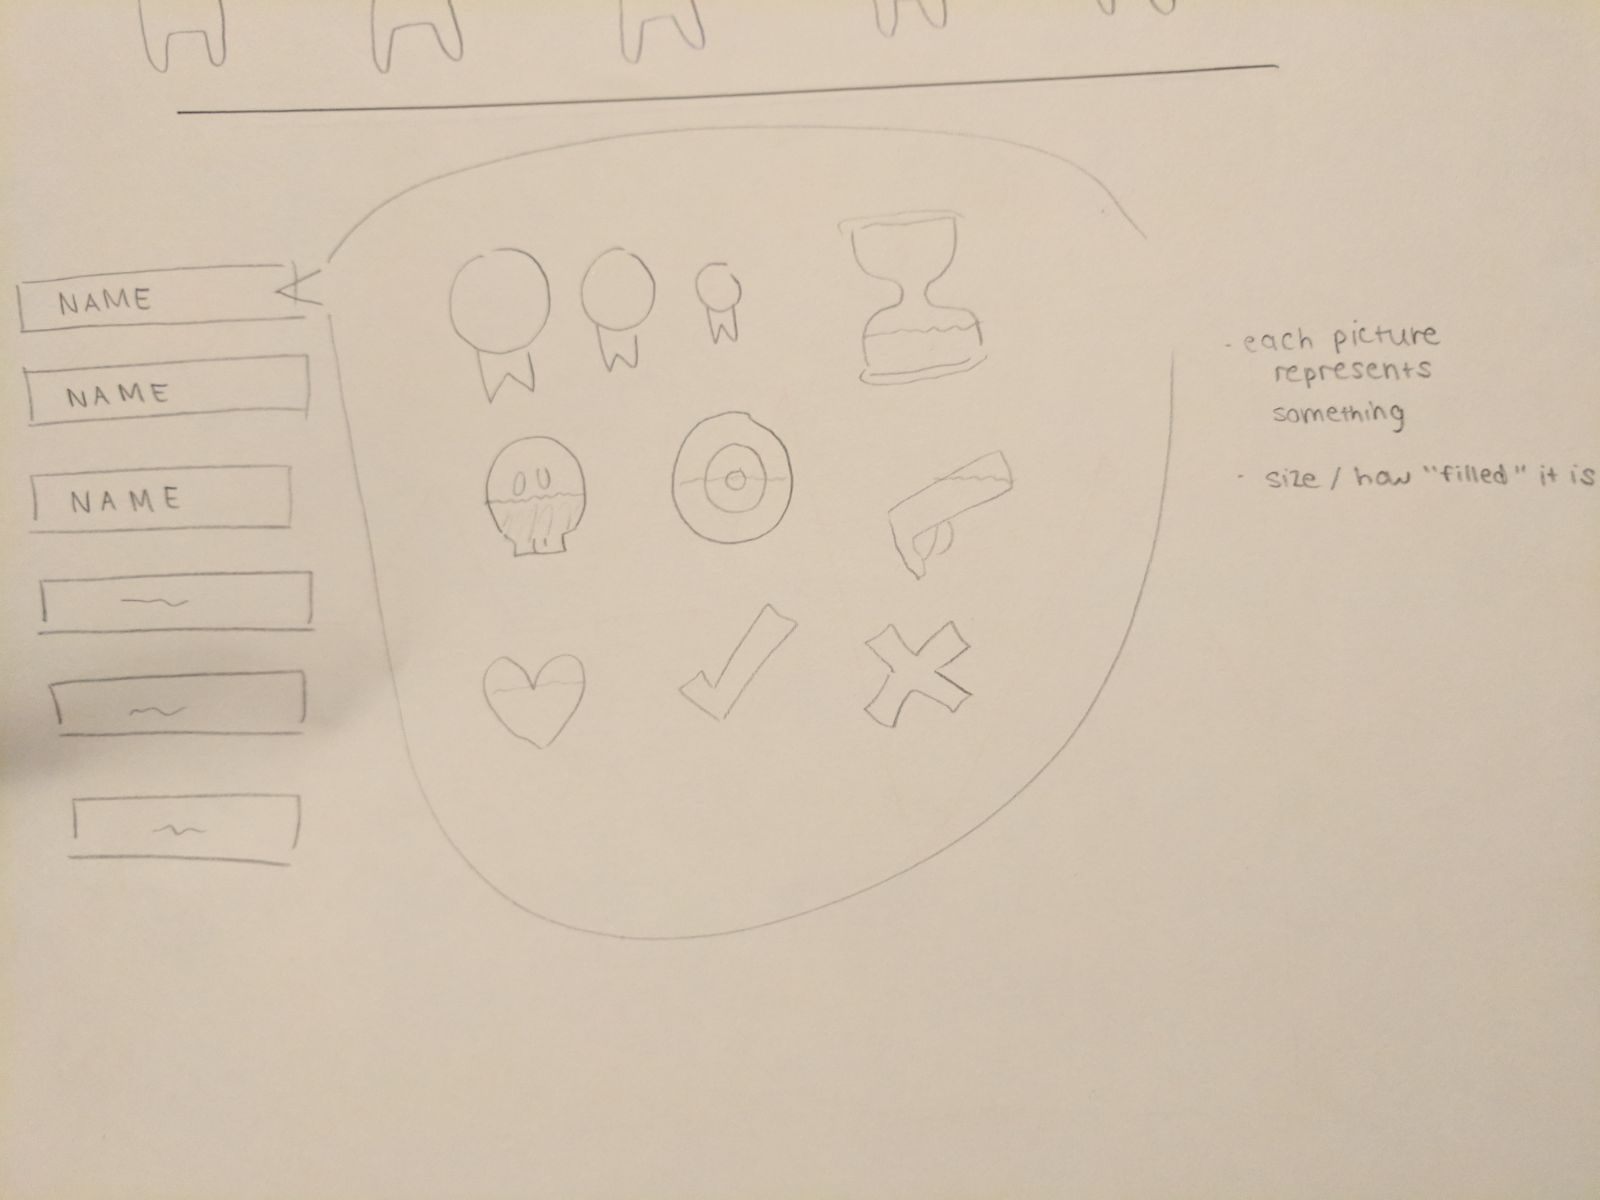 NAME
NAME
NAME
- each picture
represents
something
- size / how "filled" it is